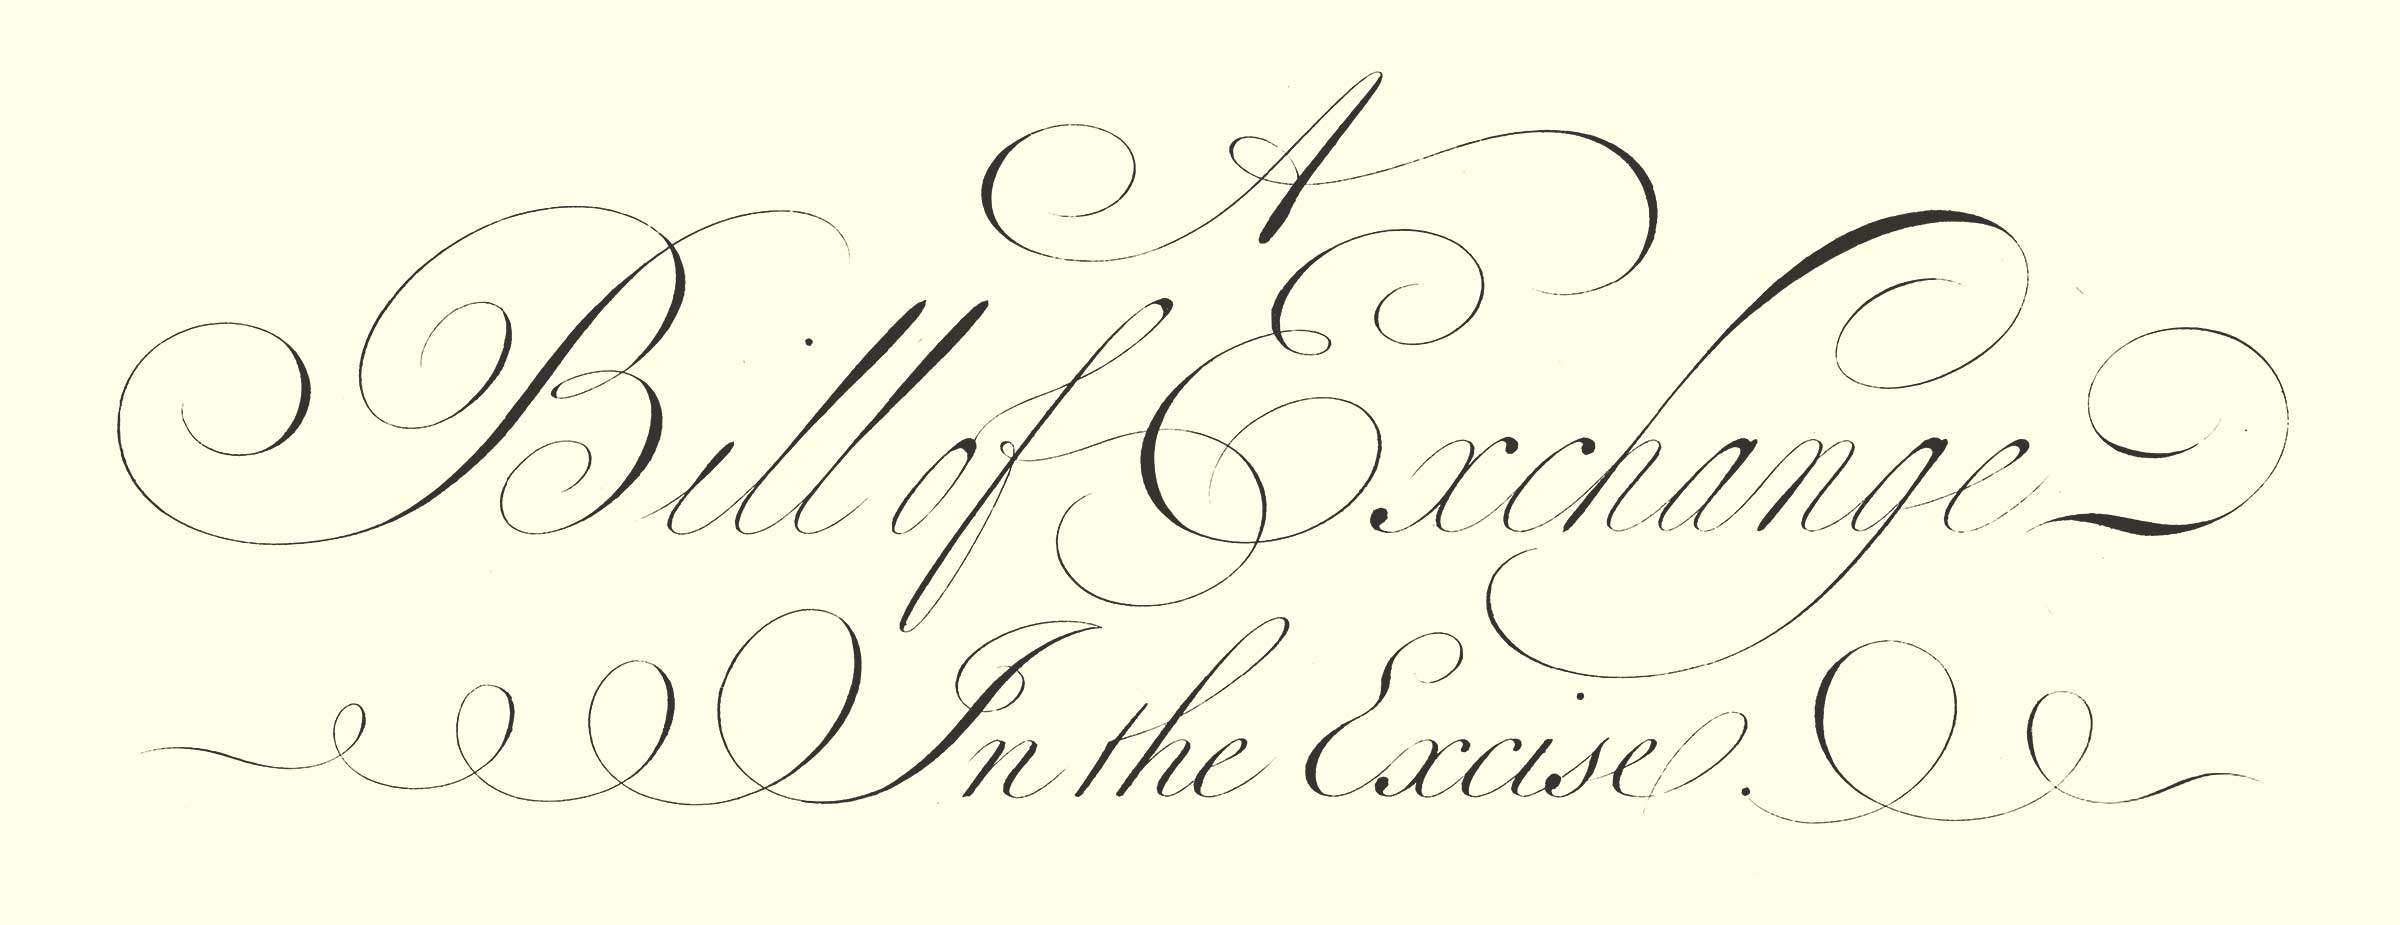 A
Bill of Exchange
In the Excise.